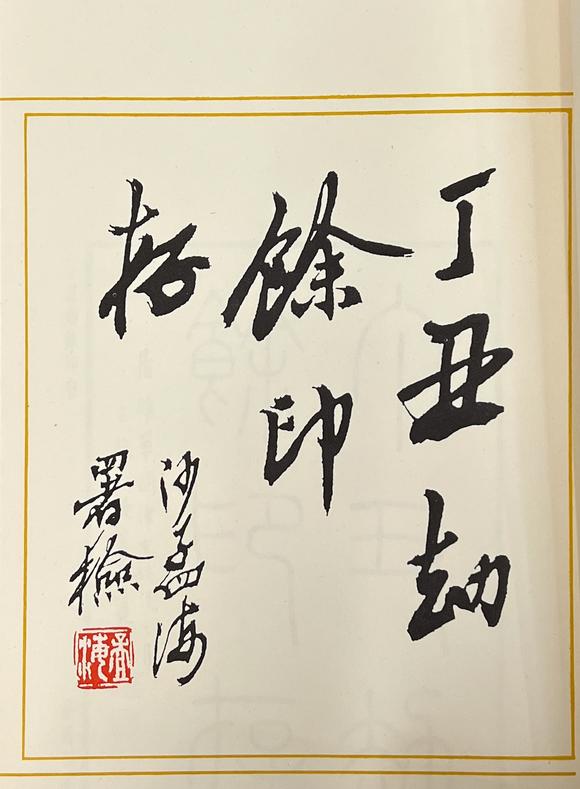 丁丑劫
餘印
存
沙孟海
署檢
孟海